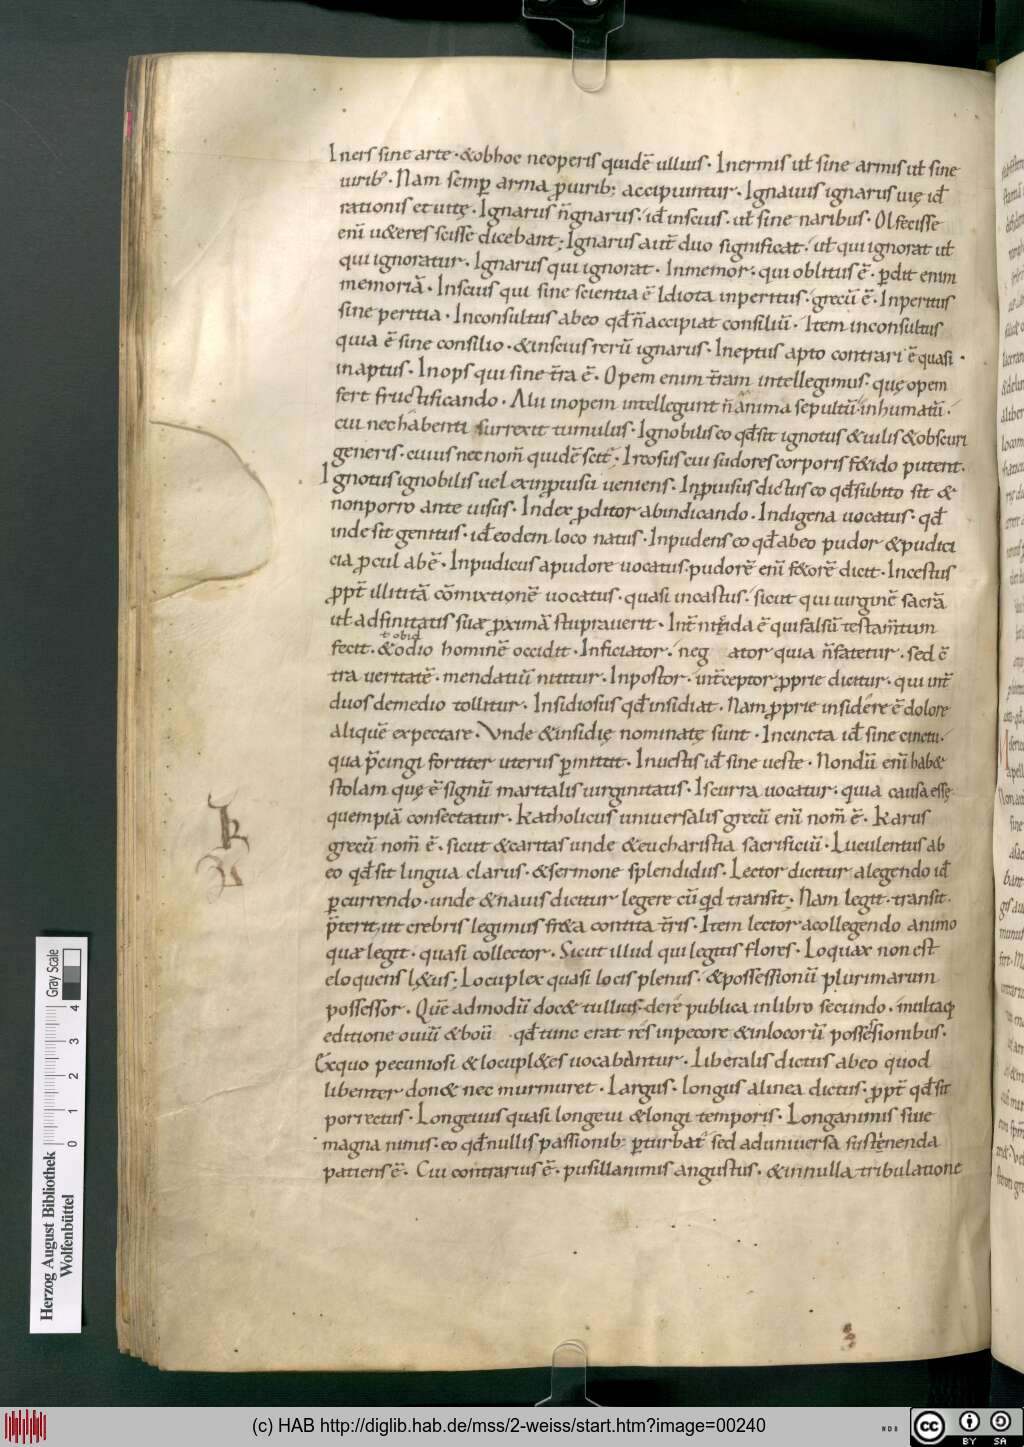 Iners sine arte · & ob hoc ne operis quidē ullius · Inermis uł sine armis uł sine
uirib; · Nam semꝑ arma ꝓ uirib; accipiuntur · Ignauus ignarus uię id̄
rationis et uitę · Ignarus n̄ gnarus · id̄ inscius · uł sine naribus · Olfecisse
eni̅ u&eres scisse dicebant; Ignarus aut̄ duo significat · uł qui ignorat uł
qui ignoratur · Ignarus qui ignorat · Inmemor · qui oblitus ē · ꝑdit enim
memoriā · Inscius qui sine scientia ē Idiota inperitus · grecū ē · Inperitus
sine peritia · Inconsultus ab eo qd̄ n̄ accipiat consiliū · Item inconsultus
quia ē sine consilio · & inscius rerū ignarus · Ineptus apto contrari ē quasi ·
inaptus · Inops qui sine t̄ra ē · Opem enim t̄ram intellegimus · quę opem
fert fructificando · Alii inopem intellegunt n̄ anima sepultū inhumatū ·
cui nec habenti surrexit tumulus · Ignobilis eo qd̄ sit ignotus & uilis & obscuri
generis · cuius nec nom̄ quidē scit̄; Ircosus cui sudores corporis f&ido putent ·
Ignotus ignobilis uel ex inꝓuisu ueniens · Inꝓuisus dictus eo qd̄ subito sit &
non porro ante uisus · Index ꝓditor ab indicando · Indigena uocatus · qd̄
inde sit genitus · id̄ eodem loco natus · Inpudens eo qd̄ ab eo pudor & pudici
cia ꝓcul abē · Inpudicus a pudore uocatus · pudorē eni̅ f&orē dicit · Incestus
ꝓpt̄ illicitā cōmixtionē uocatus · quasi incastus · sicut qui uirginē sacrā
uł adfinitatis suæ ꝓximā stuprauerit · qui falsū testam̄tum
fecit · & odio hominē occidit · Inficiator · neg ator quia n̄ fatetur · sed cō
tra ueritatē · mendatiū nititur · Inpostor · int̄ceptor ꝓprie dicitur · qui int̄
duos de medio tollitur · Insidiosus qd̄ insidiat · Nam ꝓprie insidere ē dolore
aliquē expectare · Vnde & insidię nominatę sunt · Incincta id̄ sine cinctu ·
qua p̄cingi fortiter uterus ꝑmittit · Inuestis id̄ sine ueste · Nondū eni̅ hab&
stolam quę ē signū maritalis uirginitatis · Iscurra uocatur · quia causa escę
quempiā consectatur · Katholicus uniuersalis grecū eni̅ nom̄ ē · Karus
grecū nom̄ ē · sicut & caritas unde & eucharistia sacrificiū · Luculentus ab
eo qd̄ sit lingua clarus · & sermone splendidus · Lector dicitur a legendo id̄
ꝑcurrendo · unde & nauis dicitur legere cū qd transit; Nam legit · transit ·
p̄terit, ut crebris legimus fr&a contita t̄ris · Item lector a collegendo animo
quæ legit · quasi collector · Sicut illud qui legitis flores · Loquax non est
eloquens l&us; Locuplex quasi locis plenus · & possessionū plurimarum
possessor · Quē admodū doc& tullius · de re publica in libro secundo · multaq;
editione ouiū & boū · qd̄ tunc erat res in pecore & in locorū possessionibus ·
Ex quo pecuniosi & locupl&es uocabantur · Liberalis dictus ab eo quod
libenter don& nec murmuret · Largus · longus a linea dictus · ꝓpt̄ qd̄ sit
porrectus · Longeuus quasi longeui & longi temporis · Longanimis siue
magna nimus · eo qd̄ nullis passionib; ꝑturbat̄ sed ad uniuersa sustęnenda
patiens ē · Cui contrarius ē · pusillanimis angustus · & in nulla tribulatione
K
L
Gray Scale
0 1 2 3 4
Herzog August Bibliothek
Wolfenbüttel
(c) HAB http://diglib.hab.de/mss/2-weiss/start.htm?image=00240
cc BY SA